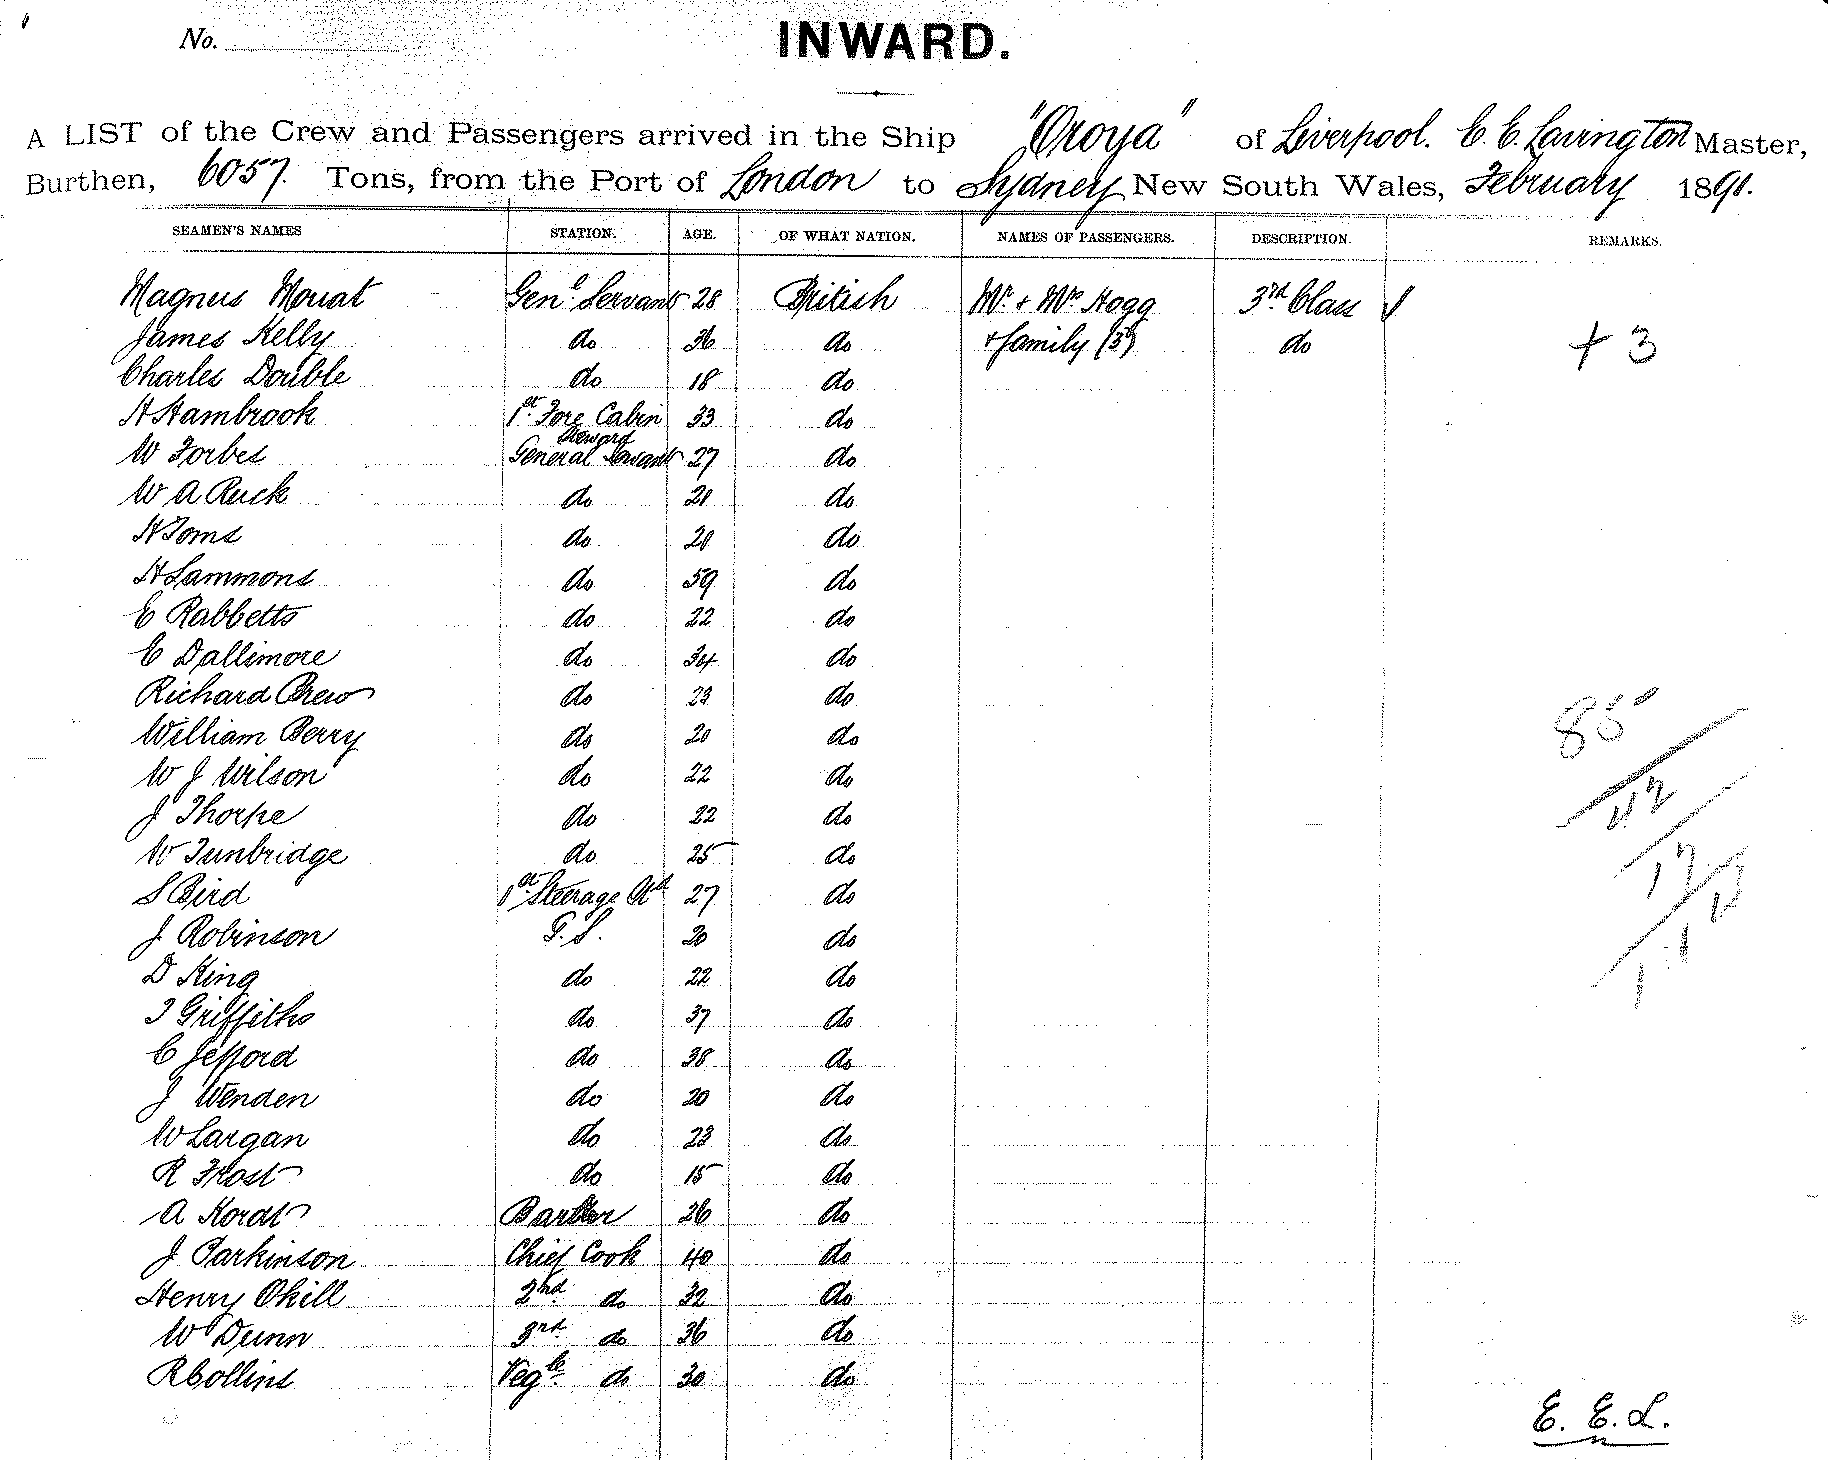 No.
INWARD.
A LIST of the Crew and Passengers arrived in the Ship "Oroya" of Liverpool. E. E. Lavington Master,
Burthen, 6057. Tons, from the Port of London to Sydney New South Wales, February 1891.
SEAMEN'S NAMES STATION. AGE. OF WHAT NATION. NAMES OF PASSENGERS. DESCRIPTION. REMARKS.
Magnus Mouat Genl. Servant 28 British Mr. + Mrs Hogg 3rd Class
James Kelly do 36 do + family (3) do + 3
Charles Double do 18 do
H Hambrook 1st Fore Cabin Steward 33 do
W Forbes General Servant 27 do
W A Ruck do 21 do
H Toms do 20 do
H Lammons do 59 do
E Rabbetts do 22 do
E Dallimore do 34 do
Richard Brew do 23 do
William Berry do 20 do
W J Wilson do 22 do
J Thorpe do 22 do
W Tunbridge do 25 do
S Bird 1st Steerage Std 27 do
J Robinson G.S. 20 do
D King do 22 do
J Griffiths do 37 do
C Jefford do 38 do
J Wenden do 20 do
W Largan do 23 do
R Frost do 15 do
A Kordt Barber 26 do
J Parkinson Chief Cook 40 do
Henry Okill 2nd do 32 do
W Dunn 3rd do 36 do
R Collins Vegble do 30 do
E. E. L.